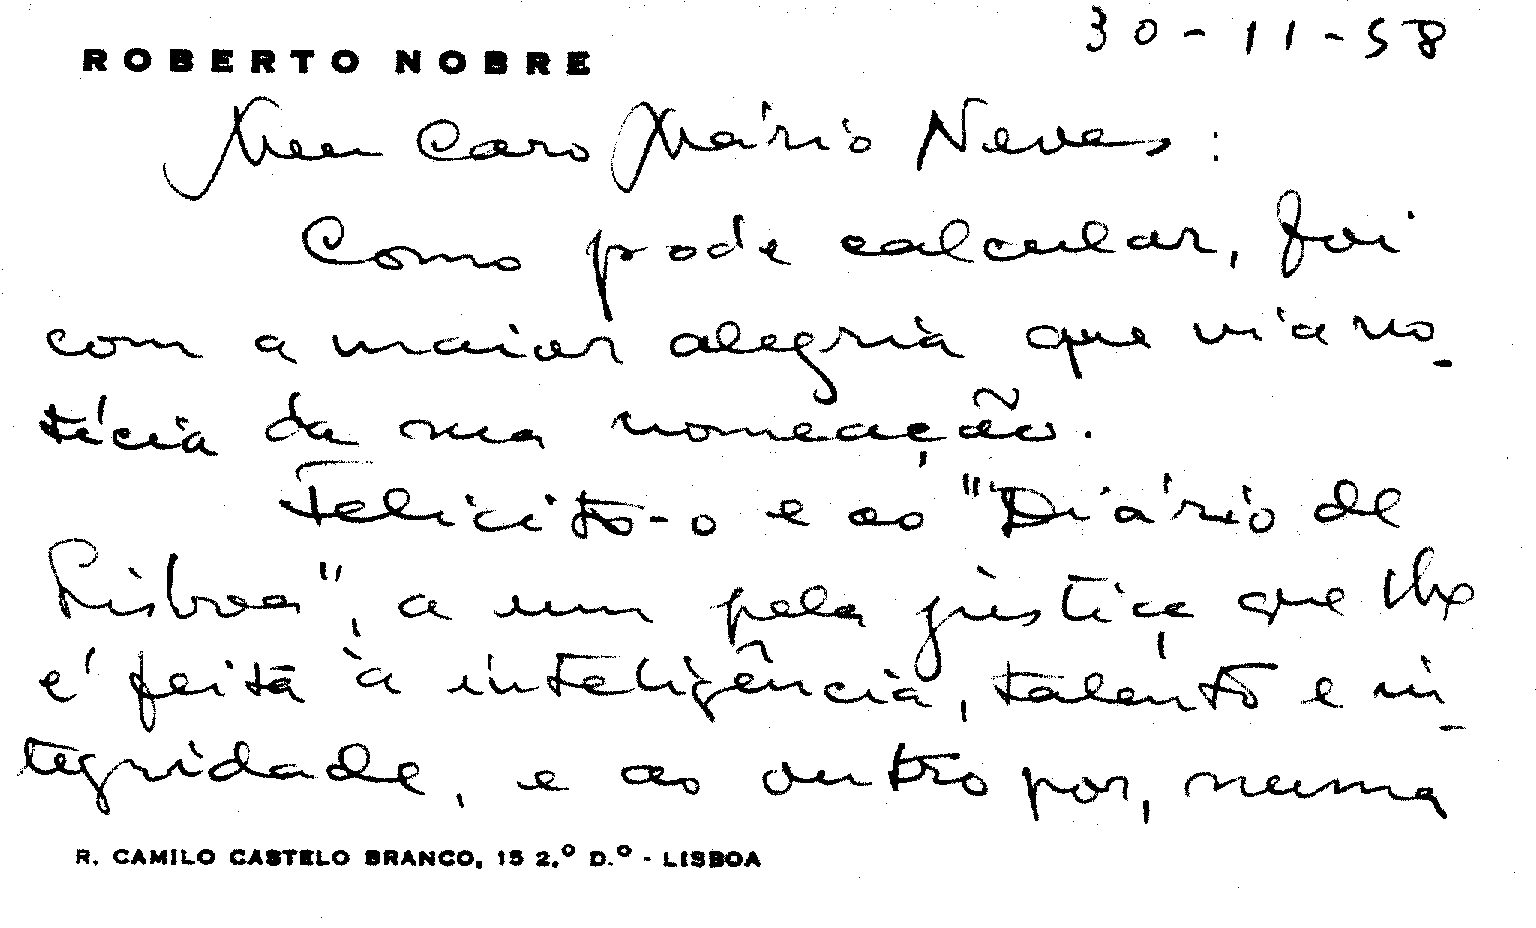 30-11-58
ROBERTO NOBRE
Meu Caro Mário Neves:
Como pode calcular, foi
com a maior alegria que vi a no-
tícia da sua nomeação.
Felicito-o e ao "Diário de
Lisboa", a um pela justiça que lhe
é feita à inteligência, talento e in-
tegridade, e ao outro por, numa
R. CAMILO CASTELO BRANCO, 15 2.º D.º - LISBOA